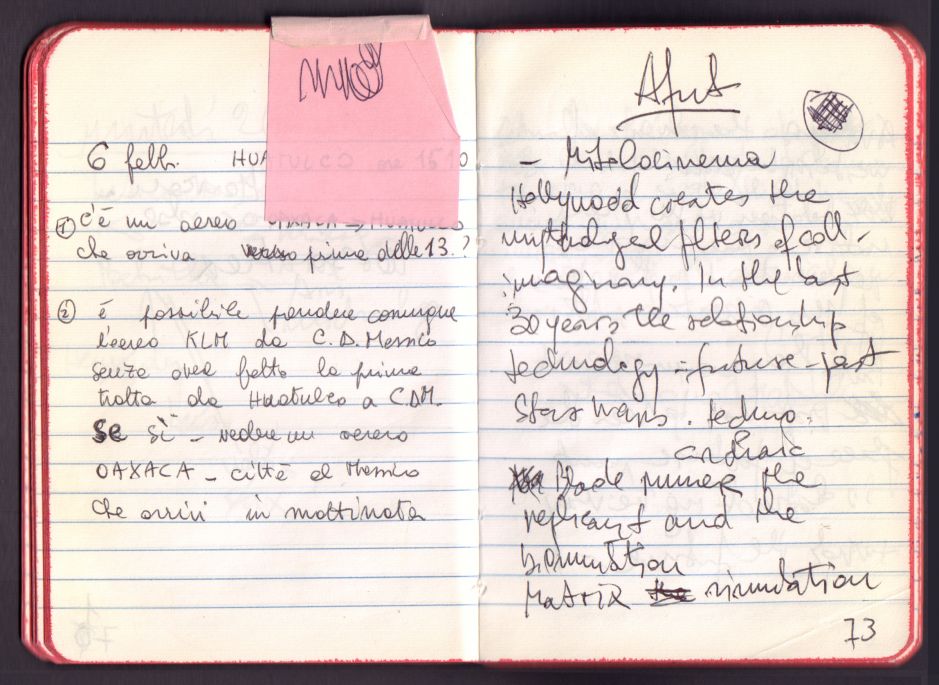 6 febb. HUATULCO ore 15 10
① c'è un aereo OAXACA → HUATULCO
che arriva verso prima delle 13.?
② è possibile prendere comunque
l'aereo KLM da C.D. Messico
senza aver fatto la prima
tratta da Huatulco a C.D.M.
Se sì - vedere un aereo
OAXACA - città del Messico
che arrivi in mattinata
- Mitolocinema
Hollywood creates the
filters of coll-
imaginary. In the last
30 years the relationship
technology - future - past
Star Wars. techno.
archaic
Blade runner the
replicant and the
Matrix the simulation
73